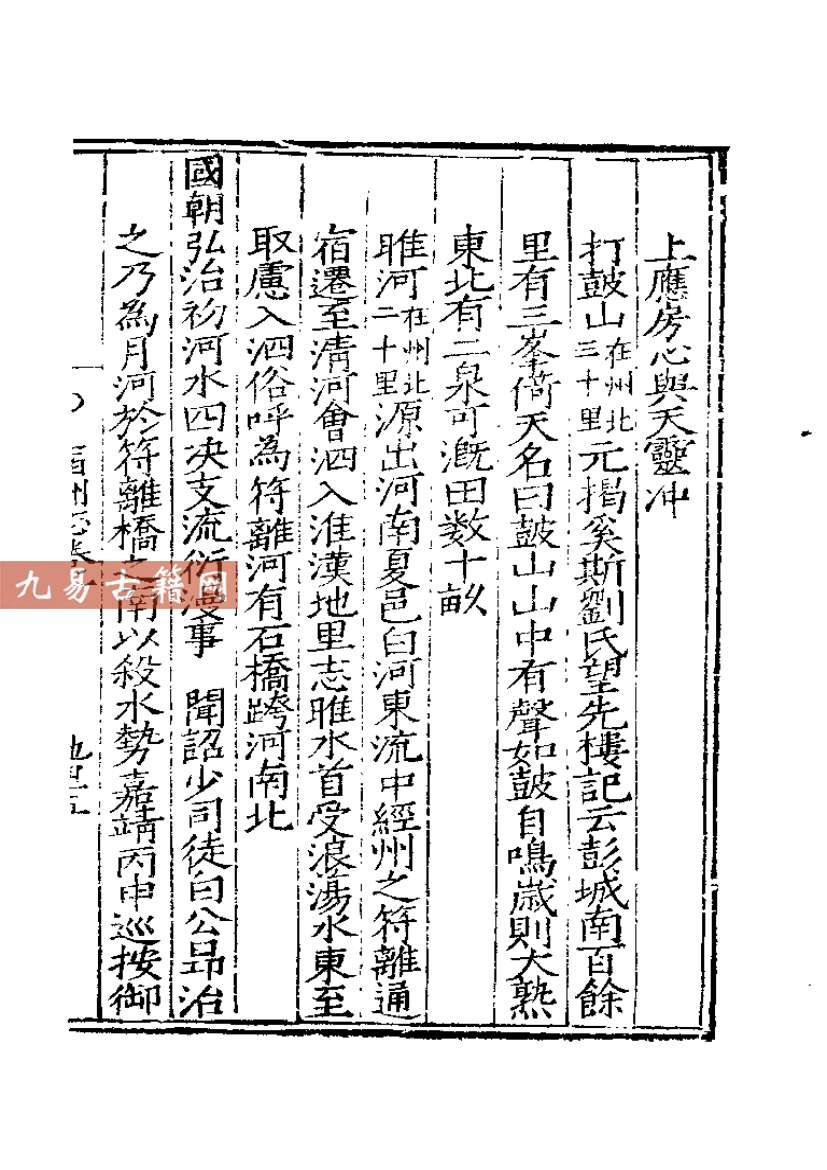 上應房心與天靈冲
打鼓山在州北三十里元揭奚斯劉氏望先樓記云彭城南百餘
里有三峯倚天名曰鼓山山中有聲如鼓自鳴歲則大熟
東北有二泉可溉田数十畝
睢河在州北二十里源出河南夏邑白河東流中經州之符離通
宿遷至清河會泗入淮漢地里志睢水首受浪蕩水東至
取慮入泗俗呼為符離河有石橋跨河南北
國朝弘治初河水四决支流衍漫事 聞詔少司徒白公昂治
之乃為月河於符離橋之南以殺水勢嘉靖丙申巡按御
宿州志卷
九易古籍网